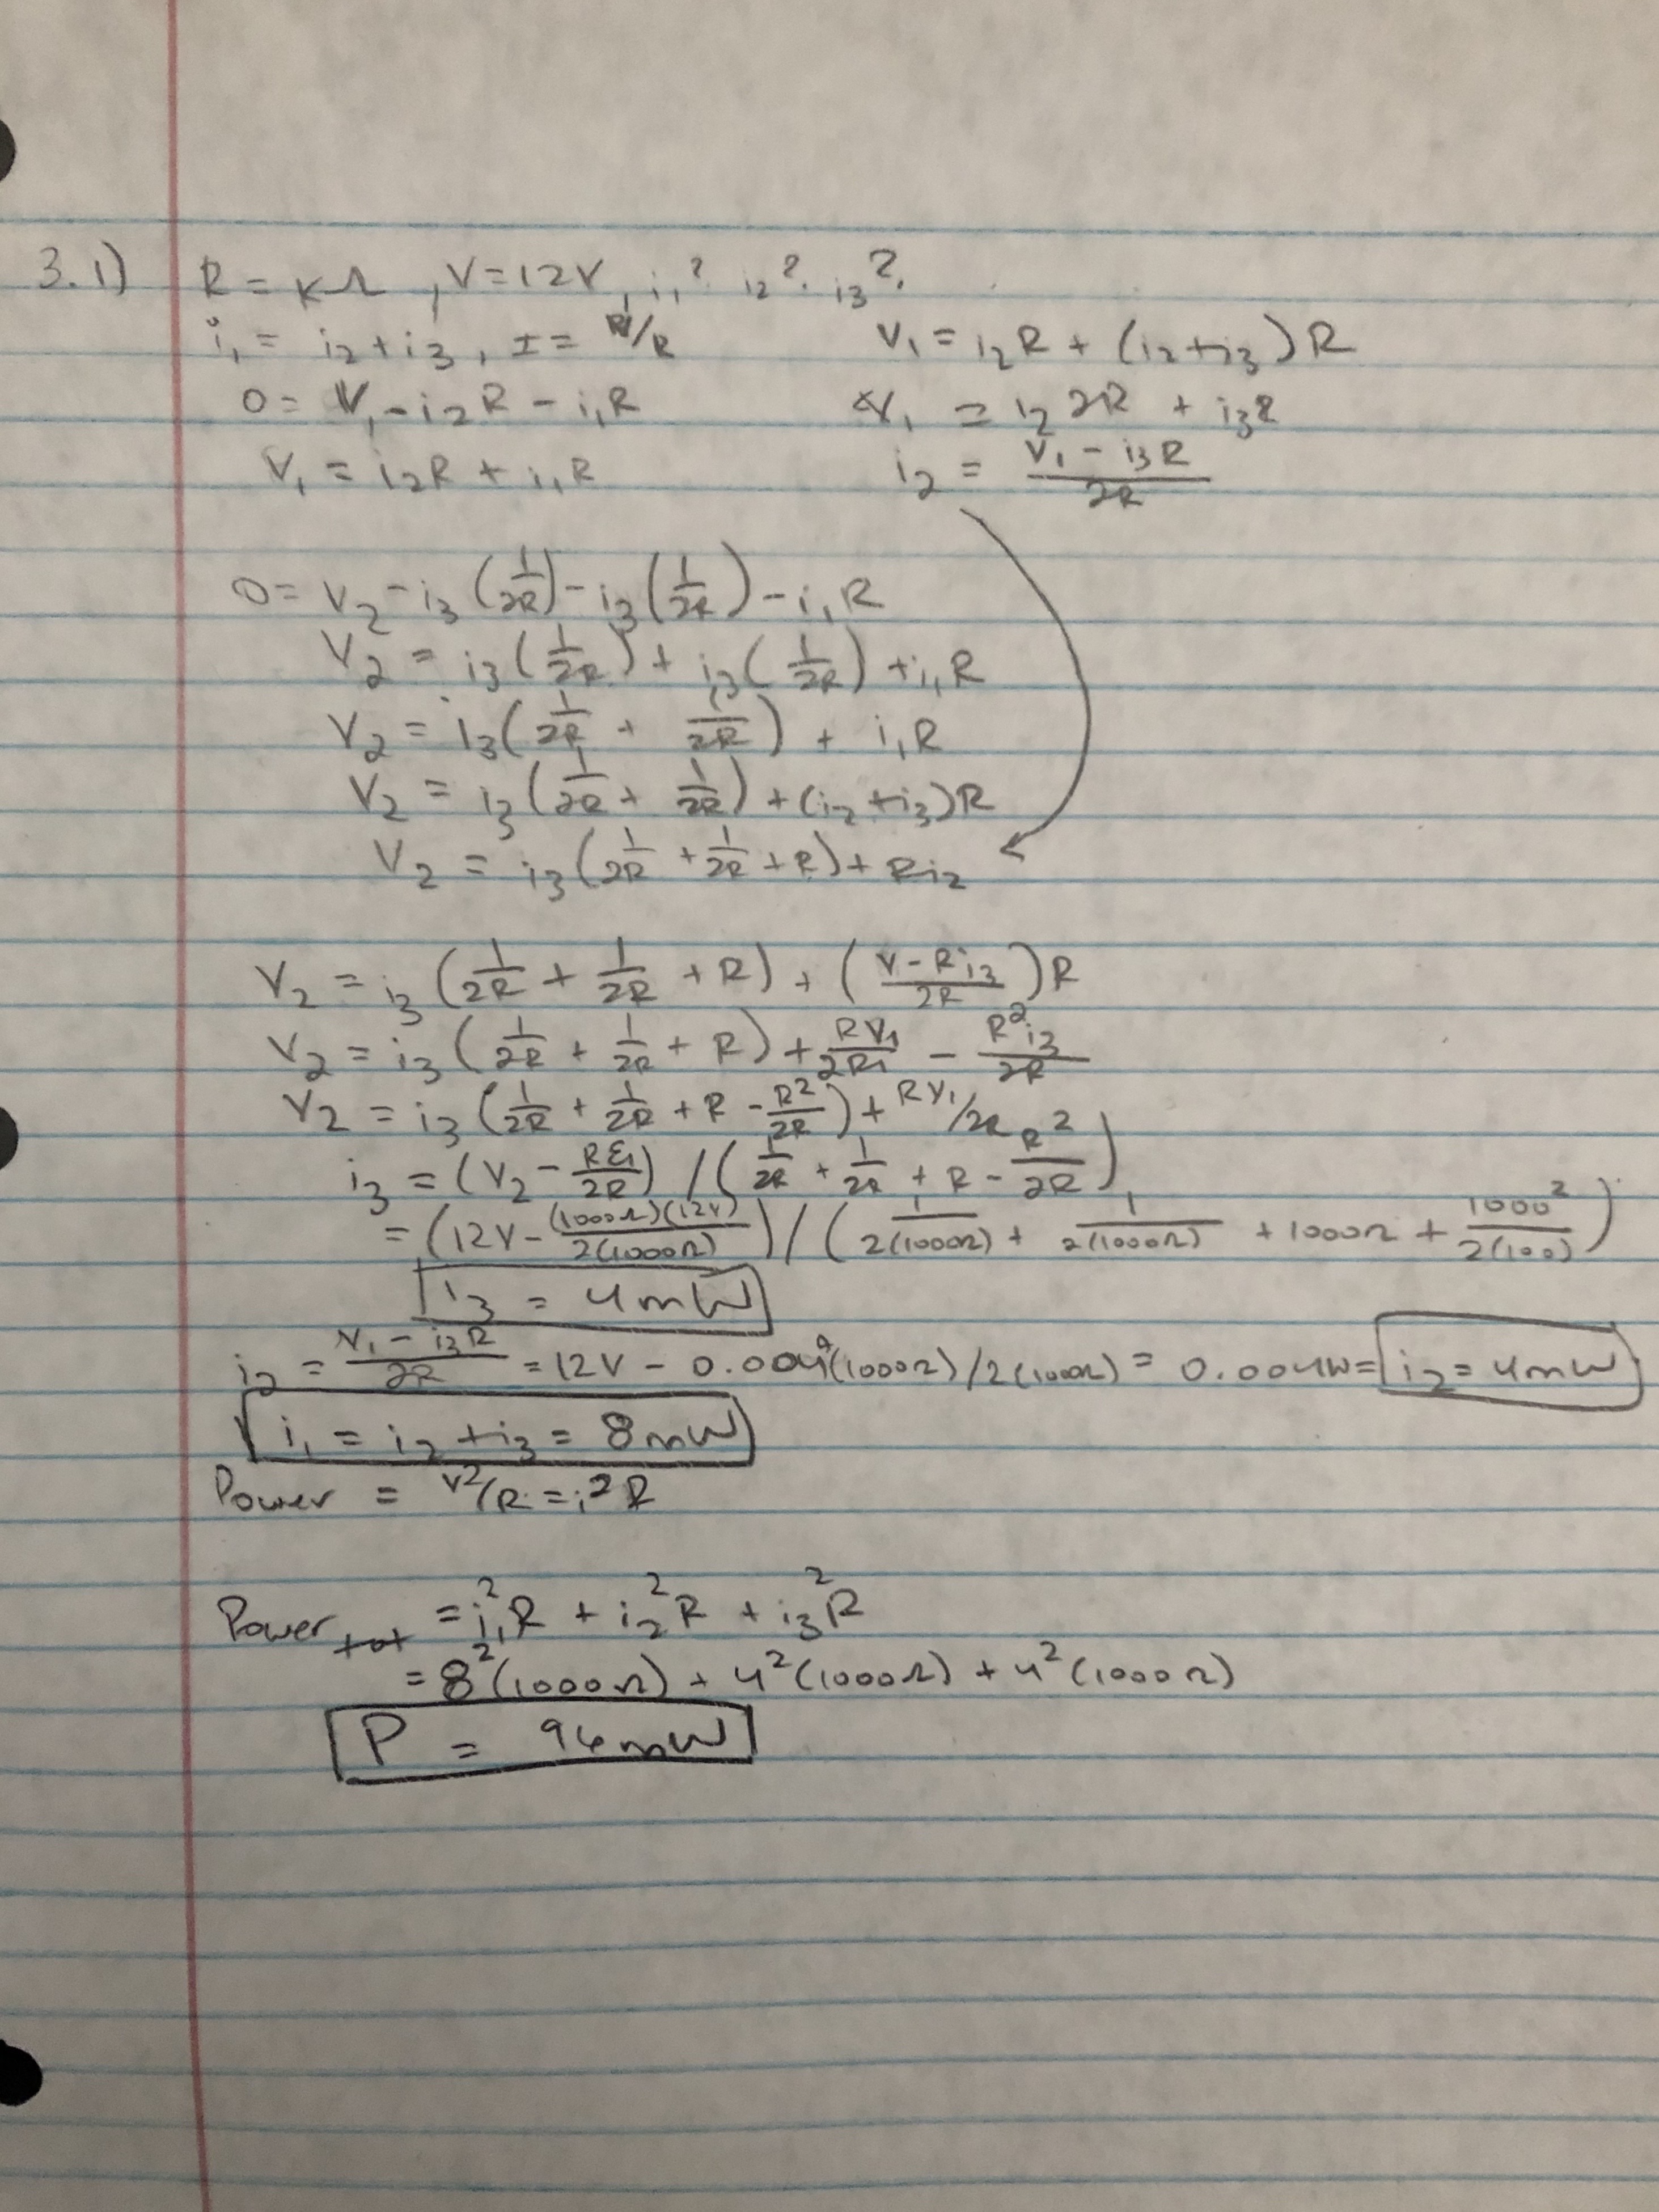 3.1) R = KΩ, V=12V, i₁? i₂? i₃?
i₁ = i₂+i₃, I = V/R
0 = V₁ - i₂R - i₁R
V₁ = i₂R + i₁R
V₁ = i₂R + (i₂+i₃)R
V₁ = i₂ 2R + i₃R
i₂ = (V₁ - i₃R)/2R
0 = V₂ - i₃(1/2R) - i₃(1/2R) - i₁R
V₂ = i₃(1/2R) + i₃(1/2R) + i₁R
V₂ = i₃(1/2R + 1/2R) + i₁R
V₂ = i₃(1/2R + 1/2R) + (i₂+i₃)R
V₂ = i₃(1/2R + 1/2R + R) + Ri₂
V₂ = i₃(1/2R + 1/2R + R) + ((V-Ri₃)/2R)R
V₂ = i₃(1/2R + 1/2R + R) + RV₁/2R₁ - R²i₃/2R
V₂ = i₃(1/2R + 1/2R + R - R²/2R) + RV₁/2R
i₃ = (V₂ - Rε₁/2R) / (1/2R + 1/2R + R - R²/2R)
= (12V - (1000Ω)(12V)/2(1000Ω)) / (1/2(1000Ω) + 1/2(1000Ω) + 1000Ω + 1000²/2(100))
i₃ = 4mW
i₂ = (V₁ - i₃R)/2R = 12V - 0.004(1000Ω)/2(1000Ω) = 0.004W = i₂ = 4mW
i₁ = i₂+i₃ = 8mW
Power = V²/R = i²R
Power tot = i₁²R + i₂²R + i₃²R
= 8²(1000Ω) + 4²(1000Ω) + 4²(1000Ω)
P = 96mW